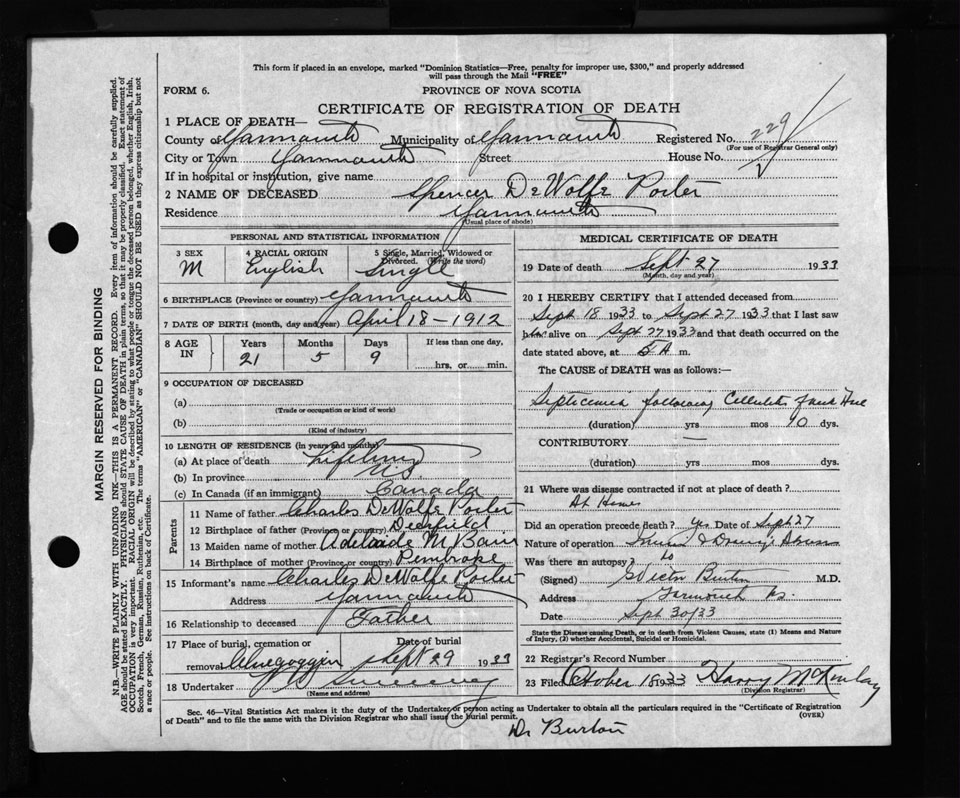 This form if placed in an envelope, marked "Dominion Statistics—Free, penalty for improper use, $300," and properly addressed
will pass through the Mail "FREE"
FORM 6. PROVINCE OF NOVA SCOTIA
CERTIFICATE OF REGISTRATION OF DEATH
1 PLACE OF DEATH—
County of Yarmouth Municipality of Yarmouth Registered No. 229
(For use of Registrar General only)
City or Town Yarmouth Street House No.
If in hospital or institution, give name
2 NAME OF DECEASED Spencer DeWolfe Porter
Residence Yarmouth
(Usual place of abode)
PERSONAL AND STATISTICAL INFORMATION
3 SEX 4 RACIAL ORIGIN 5 Single, Married, Widowed or
Divorced. (Write the word)
M English Single
6 BIRTHPLACE (Province or country) Yarmouth
7 DATE OF BIRTH (month, day and year) April 18-1912
8 AGE IN Years Months Days If less than one day,
21 5 9 hrs. or min.
9 OCCUPATION OF DECEASED
(a)
(Trade or occupation or kind of work)
(b)
(Kind of industry)
10 LENGTH OF RESIDENCE (in years and months)
(a) At place of death Lifetime
(b) In province
(c) In Canada (if an immigrant) Canada
Parents
11 Name of father Charles DeWolfe Porter
12 Birthplace of father (Province or country) Deerfield
13 Maiden name of mother Adelaide M
14 Birthplace of mother (Province or country) Pembroke
15 Informant's name Charles DeWolfe Porter
Address Yarmouth
16 Relationship to deceased Father
17 Place of burial, cremation or Date of burial
removal Sept 29 1933
18 Undertaker Sweeney
(Name and address)
MEDICAL CERTIFICATE OF DEATH
19 Date of death Sept 27 1933
(Month, day and year)
20 I HEREBY CERTIFY that I attended deceased from
Sept 18 1933 to Sept 27 1933 that I last saw
him alive on Sept 27 1933 and that death occurred on
date stated above, at 5 A m.
The CAUSE of DEATH was as follows:—
Septicemia following Cellulitis
(duration) yrs mos 10 dys.
CONTRIBUTORY —
(duration) yrs. mos. dys.
21 Where was disease contracted if not at place of death?
At Home
Did an operation precede death? Yes Date of Sept 27
Nature of operation
Was there an autopsy? No
(Signed) Victor Burton M.D.
Address Yarmouth NS
Date Sept 30/33
State the Disease causing Death, or in death from Violent Causes, state (1) Means and Nature
of Injury, (2) whether Accidental, Suicidal or Homicidal.
22 Registrar's Record Number
23 Filed October 18 1933 Harry McKinlay
(Division Registrar)
Sec. 46—Vital Statistics Act makes it the duty of the Undertaker or person acting as Undertaker to obtain all the particulars required in the "Certificate of Registration
of Death" and to file the same with the Division Registrar who shall issue the burial permit. (OVER)
Dr Burton
MARGIN RESERVED FOR BINDING
N.B.—WRITE PLAINLY WITH UNFADING INK—THIS IS A PERMANENT RECORD. Every item of information should be carefully supplied.
AGE should be stated EXACTLY. PHYSICIANS should STATE CAUSE OF DEATH in plain terms, so that it may be properly classified. Exact statement of
OCCUPATION is very important. RACIAL ORIGIN will be described by stating to what people or tongue the deceased person belonged, whether English, Irish,
Scotch, French, German, Russian, Ruthenian, etc. The terms "AMERICAN" or "CANADIAN" SHOULD NOT BE USED as they express citizenship but not
a race or people. See instructions on back of Certificate.